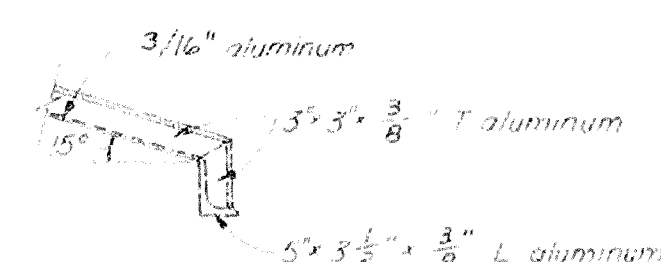 3/16" aluminum
3" x 3" x 3/8" T aluminum
15°
5" x 3 1/2" x 3/8" L aluminum